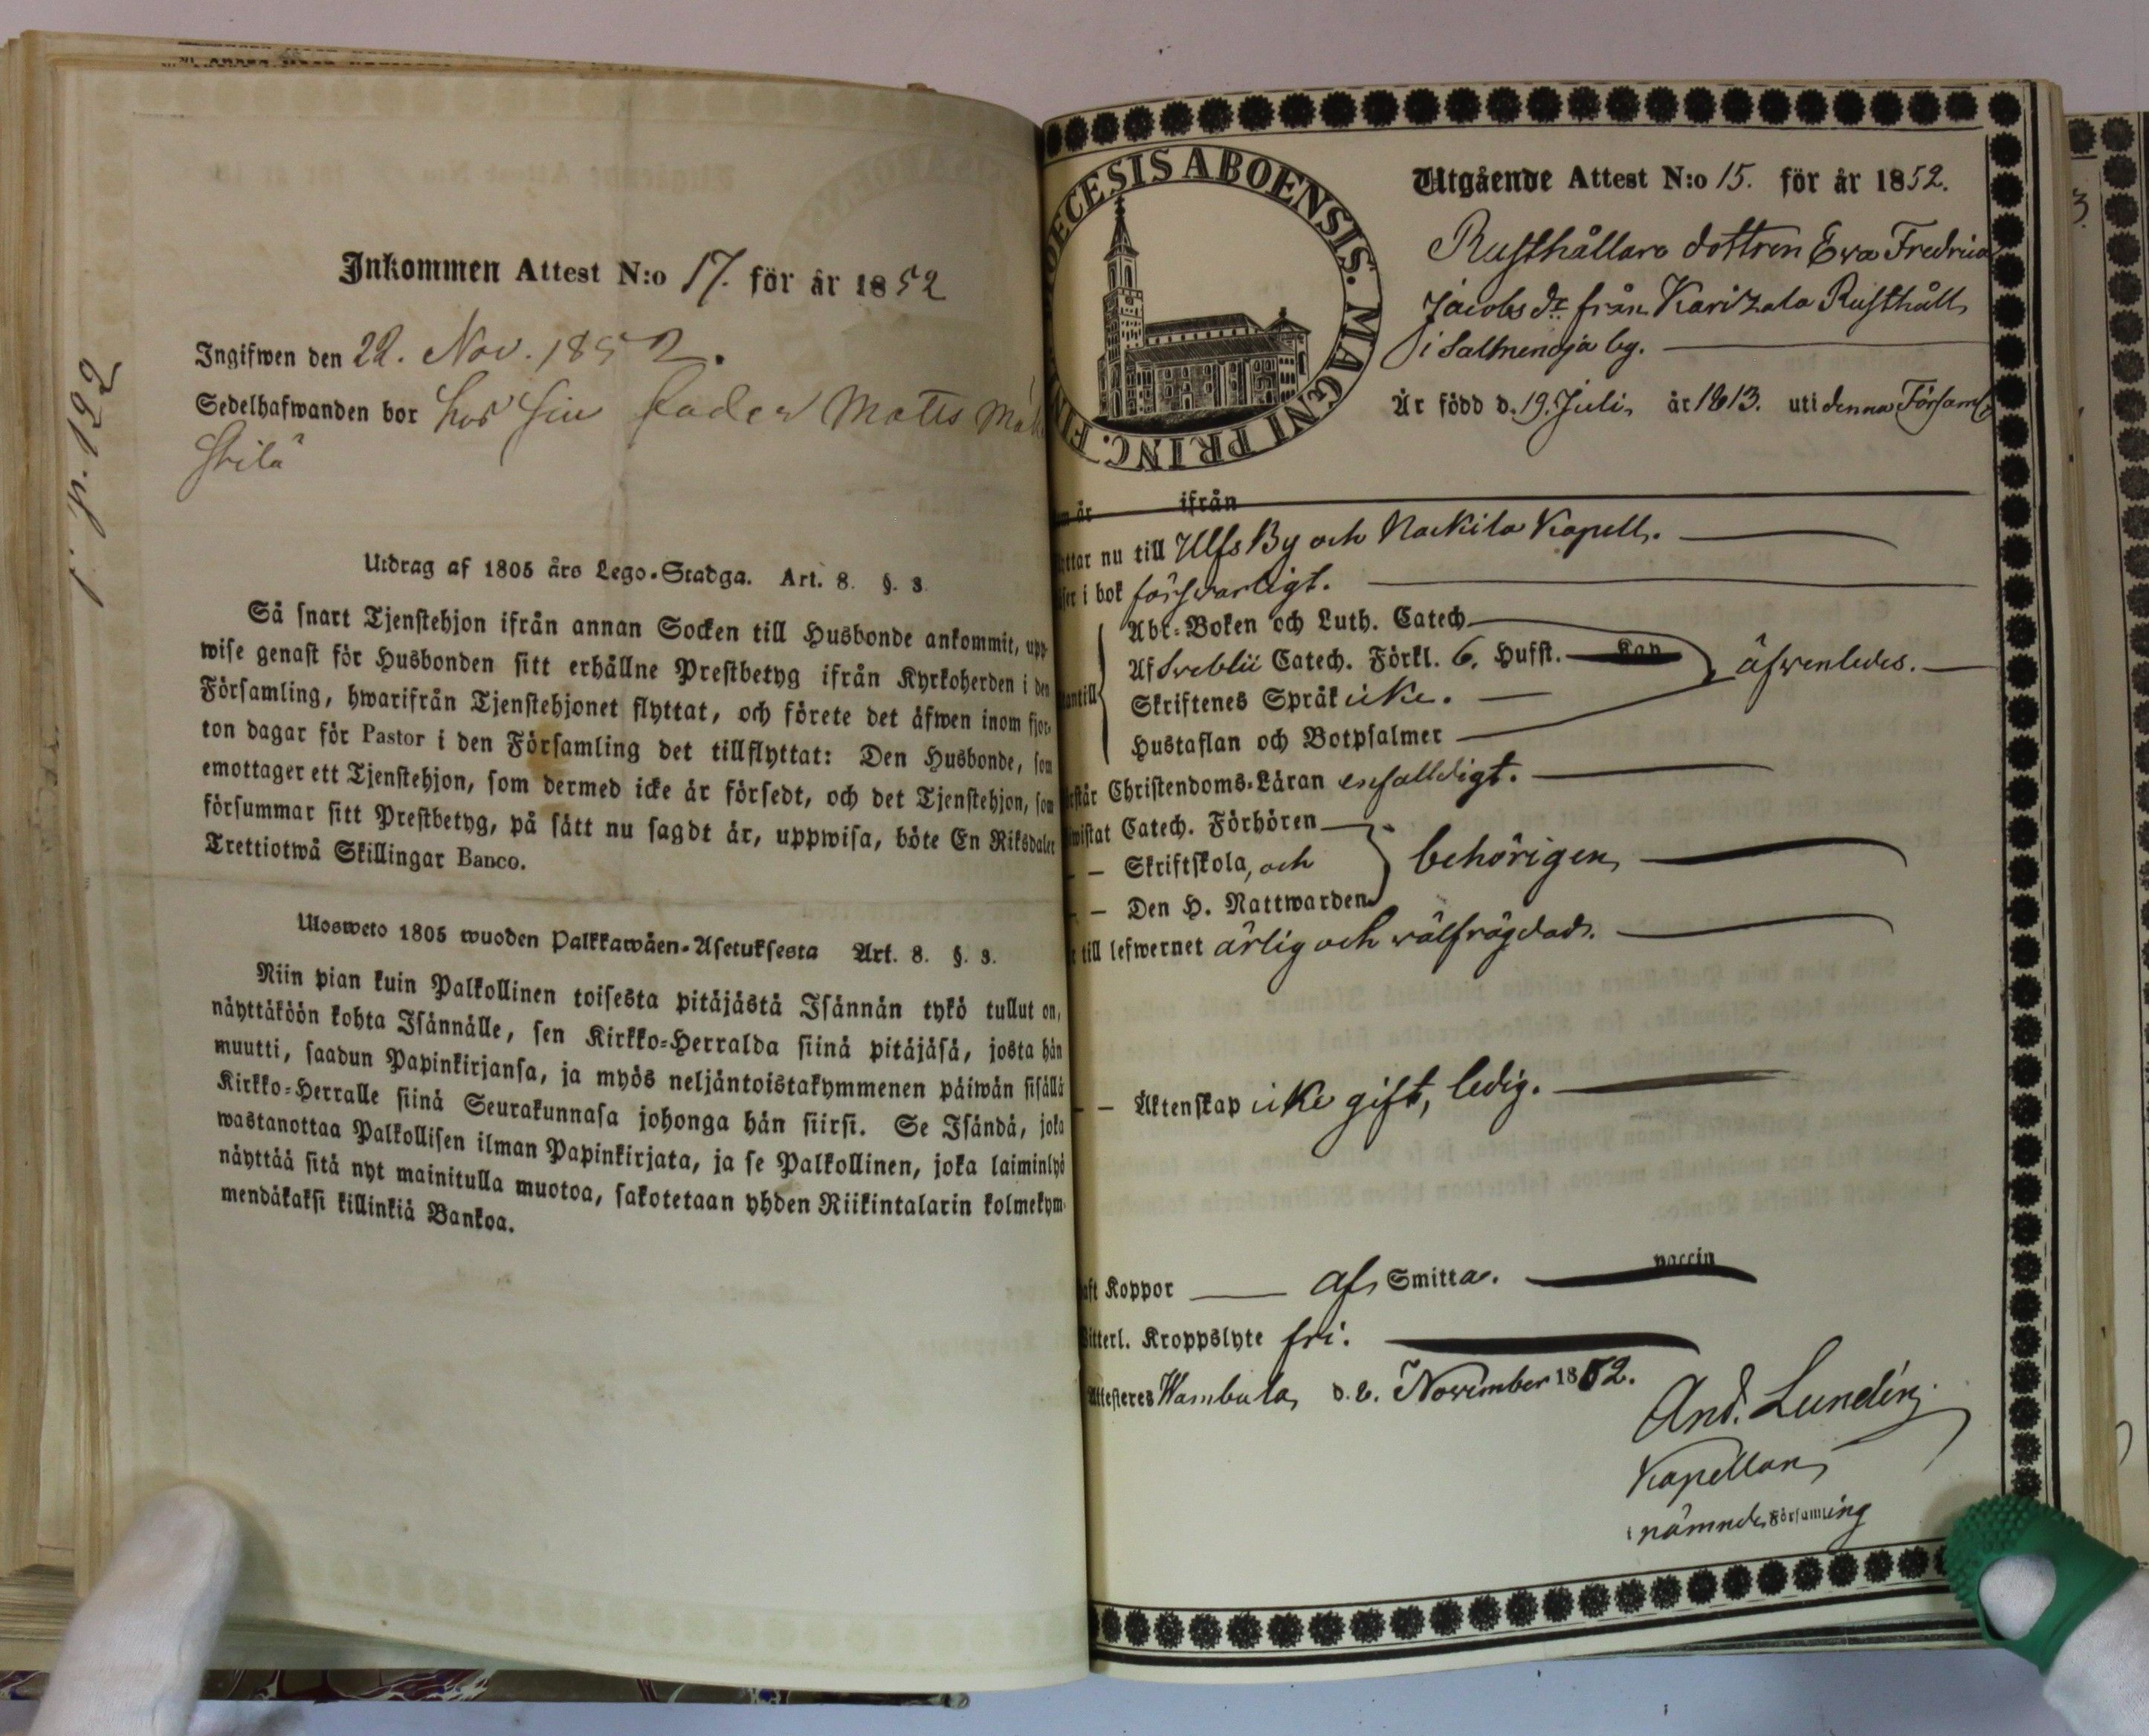 Inkommen Attest N:o 17. för år 1852
Ingifwen den 22. Nov. 1852.
Sedelhafwanden bor hos sin fader Matts
p. 122
Utdrag af 1805 års Lego-Stadga. Art. 8. §. 3.
Så snart Tjenstehjon ifrån annan Socken till Husbonde ankommit, upp-
wise genast för Husbonden sitt erhållne Prestbetyg ifrån Kyrkoherden i den
Församling, hwarifrån Tjenstehjonet flyttat, och förete det äfwen inom fjor-
ton dagar för Pastor i den Församling det tillflyttat: Den Husbonde, som
emottager ett Tjenstehjon, som dermed icke är försedt, och det Tjenstehjon, som
försummar sitt Prestbetyg, på sätt nu sagdt är, uppwisa, böte En Riksdaler
Trettiotwå Skillingar Banco.
Ulosweto 1805 wuoden Palkkawäen-Asetuksesta Art. 8. §. 3.
Niin pian kuin Palkollinen toisesta pitäjästä Isännän tykö tullut on,
näyttäköön kohta Isännälle, sen Kirkko-Herralda siinä pitäjäsä, josta hän
muutti, saadun Papinkirjansa, ja myös neljäntoistakymmenen päiwän sisällä
Kirkko-Herralle siinä Seurakunnasa johonga hän siirsi. Se Isändä, joka
wastanottaa Palkollisen ilman Papinkirjata, ja se Palkollinen, joka laiminlyö
näyttää sitä nyt mainitulla muotoa, sakotetaan yhden Riikintalarin kolmekym-
mendäkaksi killinkiä Bankoa.
DECESIS ABOENSIS. MAGNI PRINC. FIN
Utgående Attest N:o 15. för år 1852.
Rusthållare dottren Ewa Fredrica
Jacobs dr. från Karizala Rusthåll
i Sallmenoja by.
Är född d. 19. Juli, år 1813. uti denna Församl.
är ifrån
ttar nu till Ulfsby och Nackila Kapell.
ser i bok försvarligt.
antill
Abc-Boken och Luth. Catech.
Af Svebilii Catech. Förkl. 6. Hufst. Kap äfwenledes.
Skriftenes Språk icke.
Hustaflan och Botpsalmer
rstår Christendoms-Läran enfalldigt.
wistat Catech. Förhören
— Skriftskola, och behörigen
— Den H. Nattwarden
till lefwernet ärlig och wälfrägdad.
— — Äktenskap icke gift, ledig.
aft Koppor af Smitta. vaccin
itterl. Kroppslyte fri.
Attesteres Wambula, d. 2. November 1852.
And. Lundén
Kapellan
i nämnde Församling